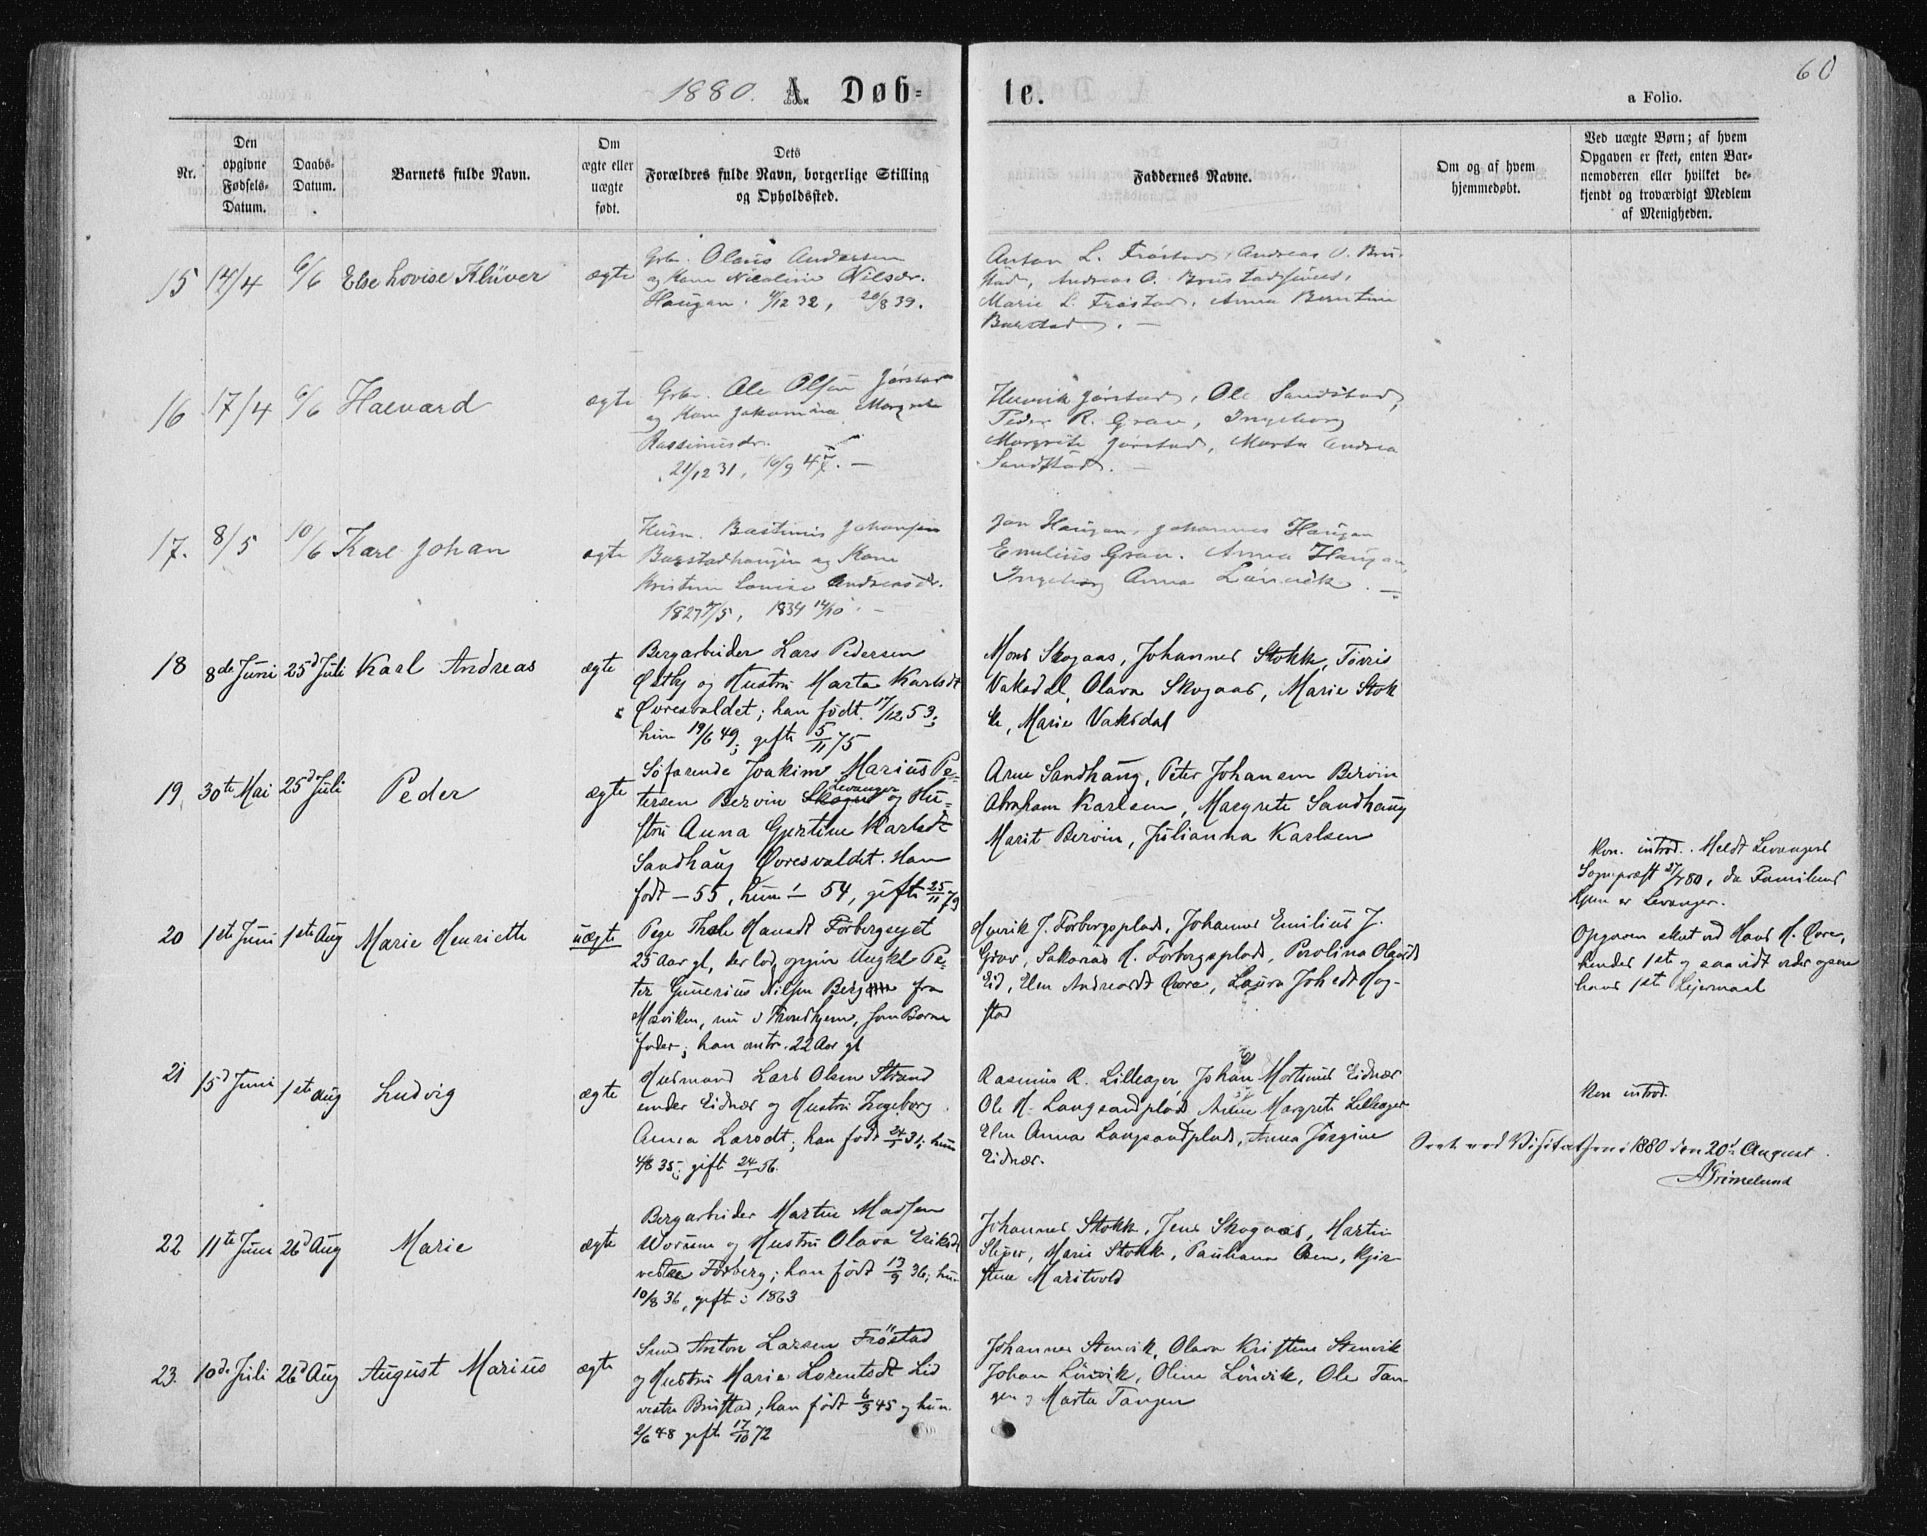 1880. A. Døb=
te.
60
a Folio.
Nr.
Den opgivne Fødsels-Datum.
Daabs-Datum.
Barnets fulde Navn.
Om ægte eller uægte født.
Dets Forældres fulde Navn, borgerlige Stilling og Opholdssted.
Faddernes Navne.
Om og af hvem hjemmedøbt.
Ved uægte Børn; af hvem Opgaven er skeet, enten Barnemoderen eller hvilket bekjendt og troværdigt Medlem af Menigheden.
15 14/4 6/6 Else Lovise Klüver ægte
Grbr. Olaus Andersen
og Kone Nicoline Nilsdr.
Haugan. 4/12 32, 20/8 39.
Anton L. Frøstad, Andreas O. Bru
stad, Andreas O. Brustadsunet,
Marie L. Frøstad, Anna Berntine
Burstad. —
16 17/4 6/6 Halvard ægte
Grbr. Ole Olsen Jørstad
og Kone Jakomina Margrete
Rassinusdr.
21/12 31, 10/9 4
Henrik Jørstad, Ole Sandstad,
Peder R. Gran, Ingeborg
Margrete Jørstad, Marta Andrea
Sandstad. —
17. 8/5 10/6 Karl Johan ægte
Husm. Bastinus Johansen
Burstadhaugen og Kone
Kristine Lovise Andreasdr.
1827 4/5, 1834 14/10. —
Jon Haugan, Johannes Haugan
Emilius Gran. Anna Haugan,
Ingeborg Anna Lønvik. —
18 8de Juni 25d Juli Karl Andreas ægte
Bergarbeider Lars Pedersen
Østby og Hustru Marta Karlsdt
Øvresvaldet; han født 17/12 53;
hun 19/6 49; gift 5/11 75
Mons Skogaas, Johannes Stokke, Torris
Vaksdal, Olava Skogaas, Marie Stok
ke, Marie Vaksdal
19 30te Mai 25d Juli Peder ægte
Søfarende Joakim Marius Pe-
tersen Bervin Levanger og Hu-
stru Anna Gjertine Karlsdt
Sandhaug Øvresvaldet. Han
født — 55, hun — 54, gift 25/11 79
Arne Sandhaug, Peter Johansen Bervin
Abraham Karlsen, Margrete Sandhaug
Marit Bervin, Julianna Karlsen
Kon. introd. Meldt Levangers
Sognepræst 27/7 80, da Familiens
Hjem er Levanger.
20 1ste Juni 1ste Aug Marie Henriette uægte
Pige Thale Hansdt Forbergsejet
25 Aar gl, der lod opgive Ungkl Pe-
ter Gunerius Nilsen Berg fra
Mosviken, nu i Trondhjem, som Barne
fader; han omtr. 22 Aar gl
Henrik J. Forbergsplads, Johannes Emilius J.
Grav, Sakarias H. Forbergsplads, Perolina Olausdt
Eid, Elen Andreasdt Øvre, Laura Johsdt Hog-
stad
Opgaven sket ved Hans H. Øvre,
hendes 1ste og saavidt vides ogsaa
hans 1ste Lejermaal
21 15d Juni 1ste Aug Ludvig ægte
Husmand Lars Olsen Strand
under Eidnæs og Hustru Ingeborg
Anna Larsdt; han født 24/1 31; hun
4/8 35; gift 24/1 56.
Rasmus R. Lilleager, Johan Mortinus Eidnæs
Ole H. Langsandplads, Anne Margrete Lilleager
Elen Anna Langsandplads, Anna Jørgine
Eidnæs.
Kon introd.
Seet ved Visitatsen 1880 den 20d August.
AGrimelund
22 11te Juni 26d Aug Marie ægte
Bergarbeider Martin Madsen
Worum og Hustru Olava Eriksdt
vestre Forberg; han født 13/9 36; hun
10/8 36, gift i 1863
Johannes Stokke, Jens Skogaas, Martin
Slipper, Marie Stokke, Pauliana Aasen, Kjir-
stine Maritvold
23. 10de Juli 26d Aug August Marius ægte
Smed Anton Larsen Frøstad
og Hustru Marie Lorentsdt Lid
vestre Brustad; han født 6/3 45 og hun
2/6 48 gift 17/10 72
Johannes Stenvik, Olava Kristine Stenvik
Johan Lønvik, Oline Lønvik, Ole Tan-
gen og Marta Tangen